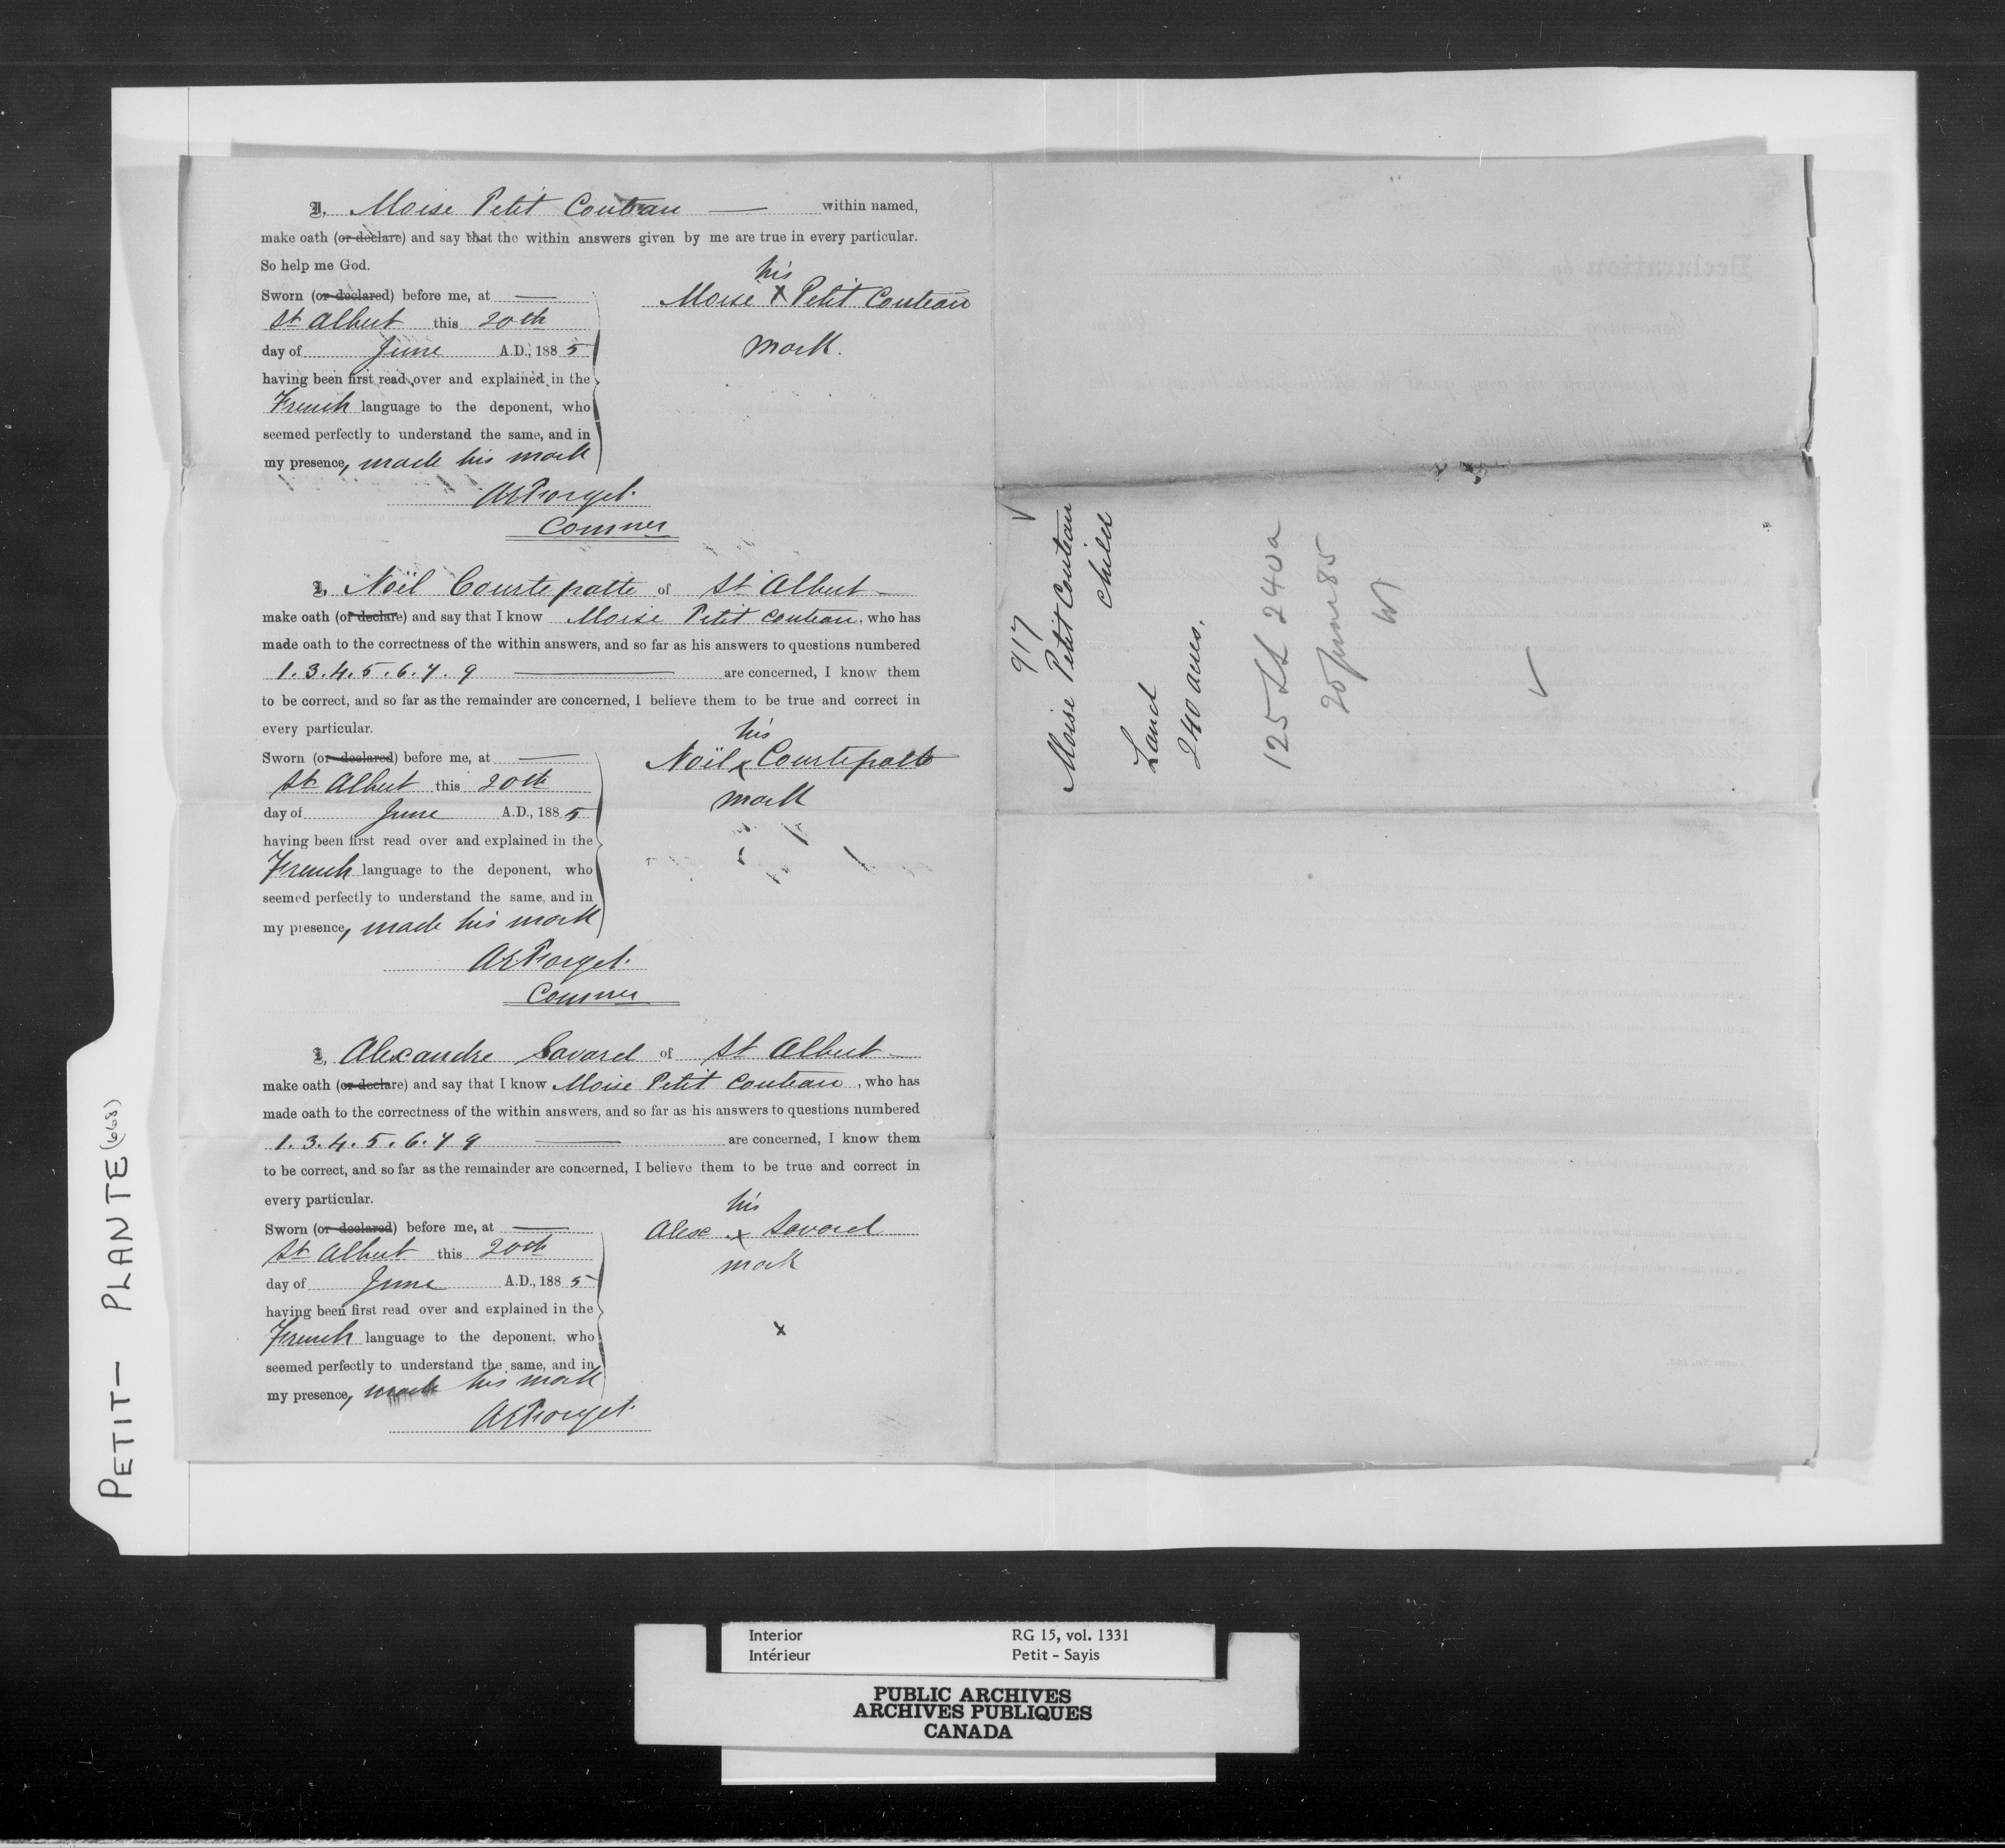 I, Moise Petit Couteau — within named,
make oath (or declare) and say that the within answers given by me are true in every particular.
So help me God.
Sworn (or declared) before me, at —
St Albert this 20th
day of June A.D., 1885
having been first read over and explained in the
French language to the deponent, who
seemed perfectly to understand the same, and in
my presence, made his mark
his
Moise x Petit Couteau
mark.
AEForget.
Commer
I, Noël Courtepatte of St Albert —
make oath (or declare) and say that I know Moise Petit Couteau, who has
made oath to the correctness of the within answers, and so far as his answers to questions numbered
1. 3. 4. 5. 6. 7. 9 — are concerned, I know them
to be correct, and so far as the remainder are concerned, I believe them to be true and correct in
every particular.
Sworn (or declared) before me, at —
St Albert this 20th
day of June A.D., 1885
having been first read over and explained in the
French language to the deponent, who
seemed perfectly to understand the same, and in
my presence, made his mark
his
Noël x Courtepatte
mark
AEForget.
Commer
I, Alexandre Savard of St Albert —
make oath (or declare) and say that I know Moise Petit Couteau, who has
made oath to the correctness of the within answers, and so far as his answers to questions numbered
1. 3. 4. 5. 6. 7 9 — are concerned, I know them
to be correct, and so far as the remainder are concerned, I believe them to be true and correct in
every particular.
Sworn (or declared) before me, at —
St Albert this 20th
day of June A.D., 1885
having been first read over and explained in the
French language to the deponent, who
seemed perfectly to understand the same, and in
my presence, made his mark
his
Alex x Savard
mark
x
AEForget.
917
Moise Petit Couteau
Child
Land
240 acres.
125 LL 240a
20 June 85
PETIT — PLANTE (668)
Interior RG 15, vol. 1331
Intérieur Petit - Sayis
PUBLIC ARCHIVES
ARCHIVES PUBLIQUES
CANADA